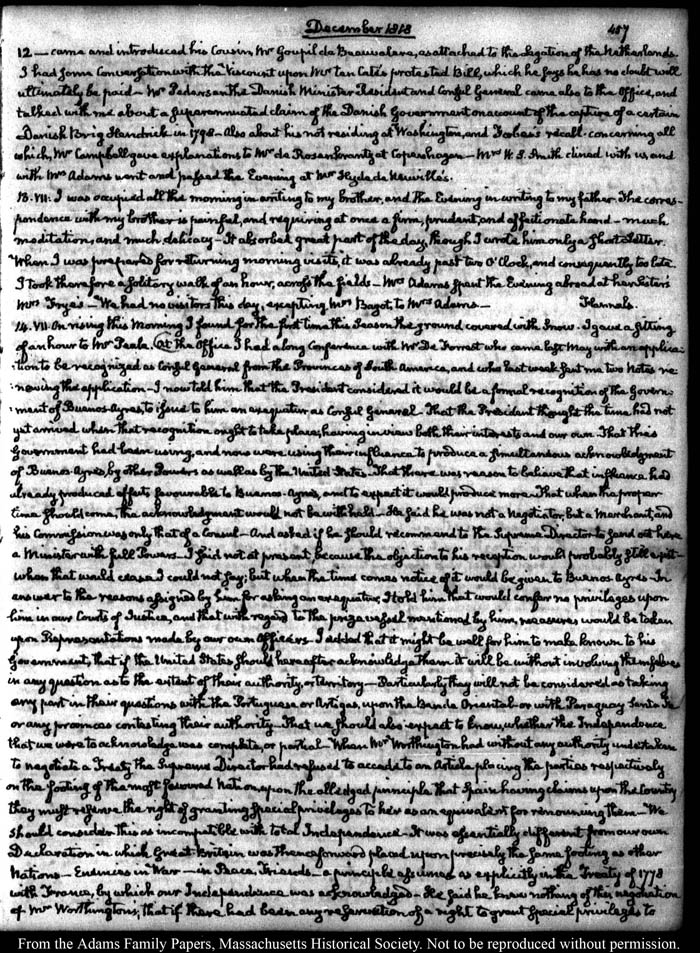 December 1818
457
12 — came and introduced his Cousin, Mr Goupil de Beauvalere, as attached to the Legation of the Netherlands.
I had some Conversation with the Viscount upon Mr Ten Cate's protested Bill, which he says he has no doubt will
ultimately be paid — Mr Pedersen the Danish Minister Resident and Consul General came also to the Office, and
talked with me about a superannuated claim of the Danish Government on account of the capture of a certain
Danish Brig Hendrick in 1798 — Also about his not residing at Washington, and Forbes's recall. concerning all
which, Mr Campbell gave explanations to Mr de Rosenkrantz at Copenhagen — Mrs W. S. Smith dined with us, and
with Mrs Adams went and passed the Evening at Mr Hyde de Neuville's.
13. VII: I was occupied all the morning in writing to my brother, and the Evening in writing to my father. The corres-
pondence with my brother is painful, and requiring at once a firm, prudent, and affectionate hand — much
meditation, and much delicacy — It absorbed great part of the day, though I wrote him only a short Letter.
When I was prepared for returning morning visits, it was already past two O'Clock, and consequently too late.
I took therefore a solitary walk of an hour, across the fields — Mrs Adams spent the Evening abroad at her Sister's
Mrs Frye's — We had no visitors this day, excepting Mrs Bagot, to Mrs Adams —
Hannah.
14. VII On rising this Morning I found for the first time this Season the ground covered with Snow. I gave a sitting
of an hour to Mr Peale. At the Office I had a long Conference with Mr De Forrest who came last May with an applica-
tion to be recognized as Consul General from the Provinces of South America, and who last week sent me two Notes re-
newing the application — I now told him that the President considered it would be a formal recognition of the Govern-
ment of Buenos Ayres, to issue to him an exequatur as Consul General — That the President thought the time had not
yet arrived when that recognition ought to take place, having in view both their interests and our own. That this
Government had been using, and now were using their influence to produce a simultaneous acknowledgment
of Buenos Ayres, by other Powers as well as by the United States — That there was reason to believe that influence had
already produced effects favourable to Buenos-Ayres, and to expect it would produce more. That when the proper
time should come, the acknowledgment would not be withheld — He said he was not a Negotiator, but a Merchant, and
his Commission was only that of a Consul — And asked if he should recommend to the Supreme Director to send out here
a Minister with full Powers — I said not at present, because the objection to his reception would probably still exist —
when that would cease I could not say; but when the time comes notice of it would be given to Buenos Ayres — In
answer to the reasons assigned by him for asking an exequatur, I told him that would confer no privileges upon
him in our Courts of Justice, and that with regard to the prize vessel mentioned by him, measures would be taken
upon Representations made by our own Officers. I added that it might be well for him to make known to his
Government, that if the United States should hereafter acknowledge them it will be without involving themselves
in any question as to the extent of their authority, or territory — Particularly they will not be considered as taking
any part in their questions with the Portuguese or Artigas, upon the Banda Oriental — or with Paraguay Santa Fe
or any provinces contesting their authority — That we should also expect to know, whether the Independence
that we were to acknowledge was complete, or partial — When Mr Worthington had without any authority undertaken
to negotiate a Treaty the Supreme Director had refused to accede to an Article placing the parties respectively
on the footing of the most favoured Nation, upon the alledged principle that Spain having claims upon the Country
they must reserve the right of granting special privileges to her as an equivalent for renouncing them — We
should consider this as incompatible with total Independence — It was essentially different from our own
Declaration in which Great-Britain was thenceforward placed upon precisely the same footing as other
Nations — Enemies in War — in Peace, Friends — a principle assumed as explicitly in the Treaty of 1778
with France, by which our Independence was acknowledged — He said he knew nothing of this negotiation
of Mr Worthington's; that if there had been any reservation of a right to grant special privileges to
From the Adams Family Papers, Massachusetts Historical Society. Not to be reproduced without permission.